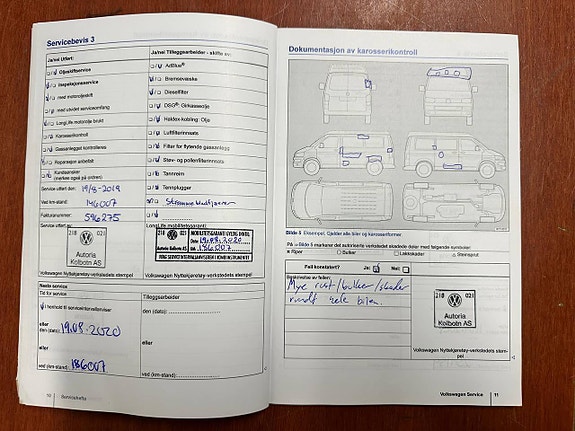 Servicebevis 3
Ja/nei Utført:
Ja/nei Tilleggsarbeider - skifte av:
Oljeskiftservice
AdBlue®
Inspeksjonsservice
Bremsevæske
med motoroljeskift
Dieselfilter
med utvidet serviceomfang
DSG® Girkasseolje
LongLife motorolje brukt
Haldex-kobling: Olje
Karosserikontroll
Luftfilterinnsats
Gassanlegget kontrolleres
Filter for flytende gassanlegg
Reparasjon anbefalt
Støv- og pollenfilterinnsats
Kundeønsker
(merkes også på ordren)
Tannreim
Tennplugger
Service utført den: 19/8-2019
Ved km-stand: 146007
Fakturanummer: 596275
Service utført av:
LongLife mobilitetsgaranti:
218 021
Autoria
Kolbotn AS
MOBILITETSGARANTI GYLDIG INNTIL
Dato 19.08.2020
Autoria Kolbotn AS
KM. 186.007
Volkswagen Nyttekjøretøy-verkstedets stempel
Volkswagen Nyttekjøretøy-verkstedets stempel
Neste service
Tid for service
Tilleggsarbeider
I henhold til serviceintervallviser
den (dato):
eller
den (dato): 19.08.2020
eller
eller
186007
ved (km-stand):
ved (km-stand):
10 Servicehefte
Dokumentasjon av karosserikontroll
Bilde 5 Eksempel. Gjelder alle biler og karosseriformer
På Bilde 5 markerer det autoriserte verkstedet skadede deler med følgende symboler:
Riper
Bulker
Lakkskader
Steinsprut
Feil konstatert?
Ja:
Nei:
Beskrivelse av feilen:
Mye rust/bulker/skader
rundt hele bilen.
218 021
Autoria
Kolbotn AS
Volkswagen Nyttekjøretøy-verkstedets stem-
pel
Volkswagen Service 11